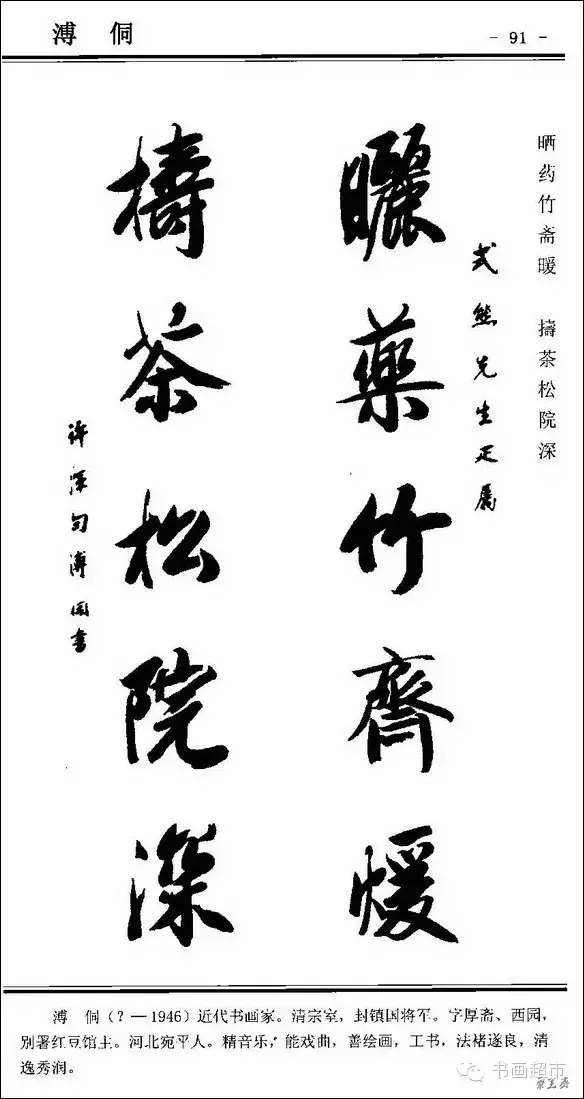 溥 侗
- 91 -
晒药竹斋暖 擣茶松院深
式熊先生正属
曬藥竹齊煖
擣茶松院深
许浑句溥侗書
溥 侗（？—1946）近代书画家。清宗室，封镇国将军。字厚斋、西园，
别署红豆馆主。河北宛平人。精音乐，能戏曲，善绘画，工书，法褚遂良，清
逸秀润。
书画超市